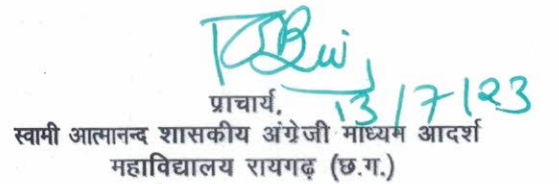 13/7/23
प्राचार्य,
स्वामी आत्मानन्द शासकीय अंग्रेजी माध्यम आदर्श
महाविद्यालय रायगढ़ (छ.ग.)